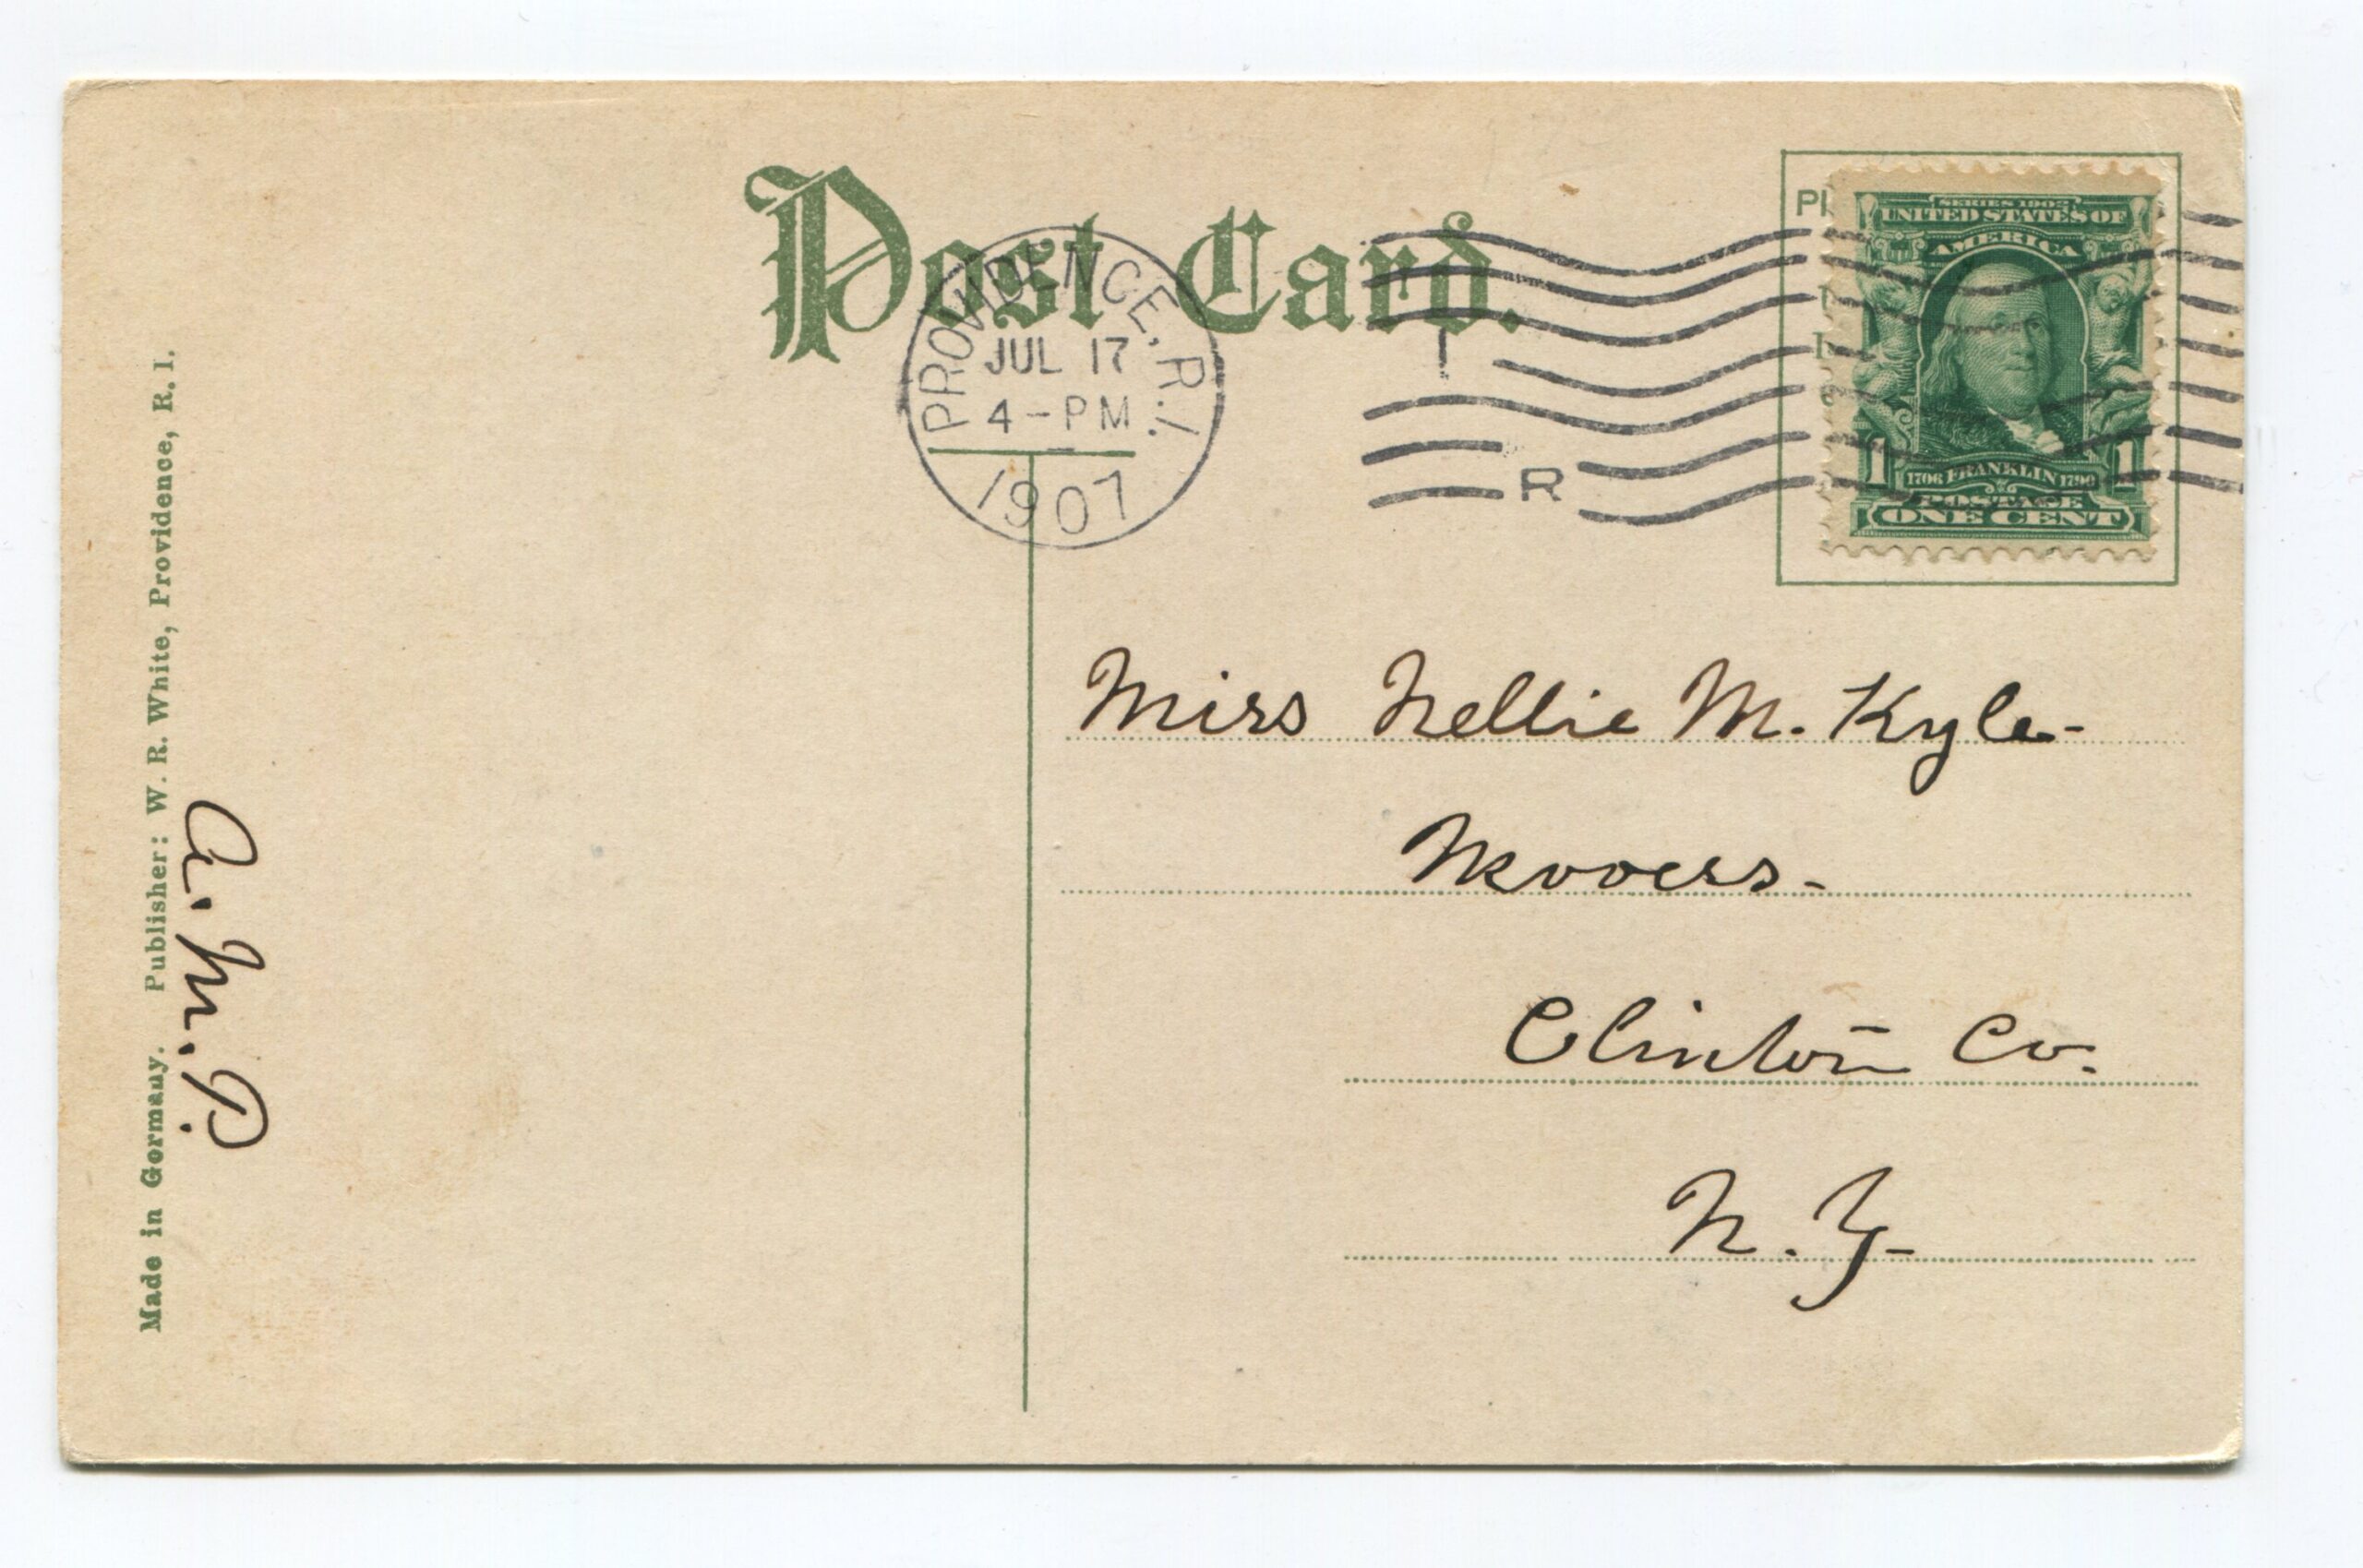 Post Card.
PROVIDENCE, R.I.
JUL 17
4-PM
1907
I
R
Pl
SERIES 1902
UNITED STATES OF
AMERICA
1 1706 FRANKLIN 1790 1
POSTAGE
ONE CENT
Miss Nellie M. Kyle-
Mooers-
Clinton Co.
N. Y-
A. M. P.
Made in Germany. Publisher: W. R. White, Providence, R. I.